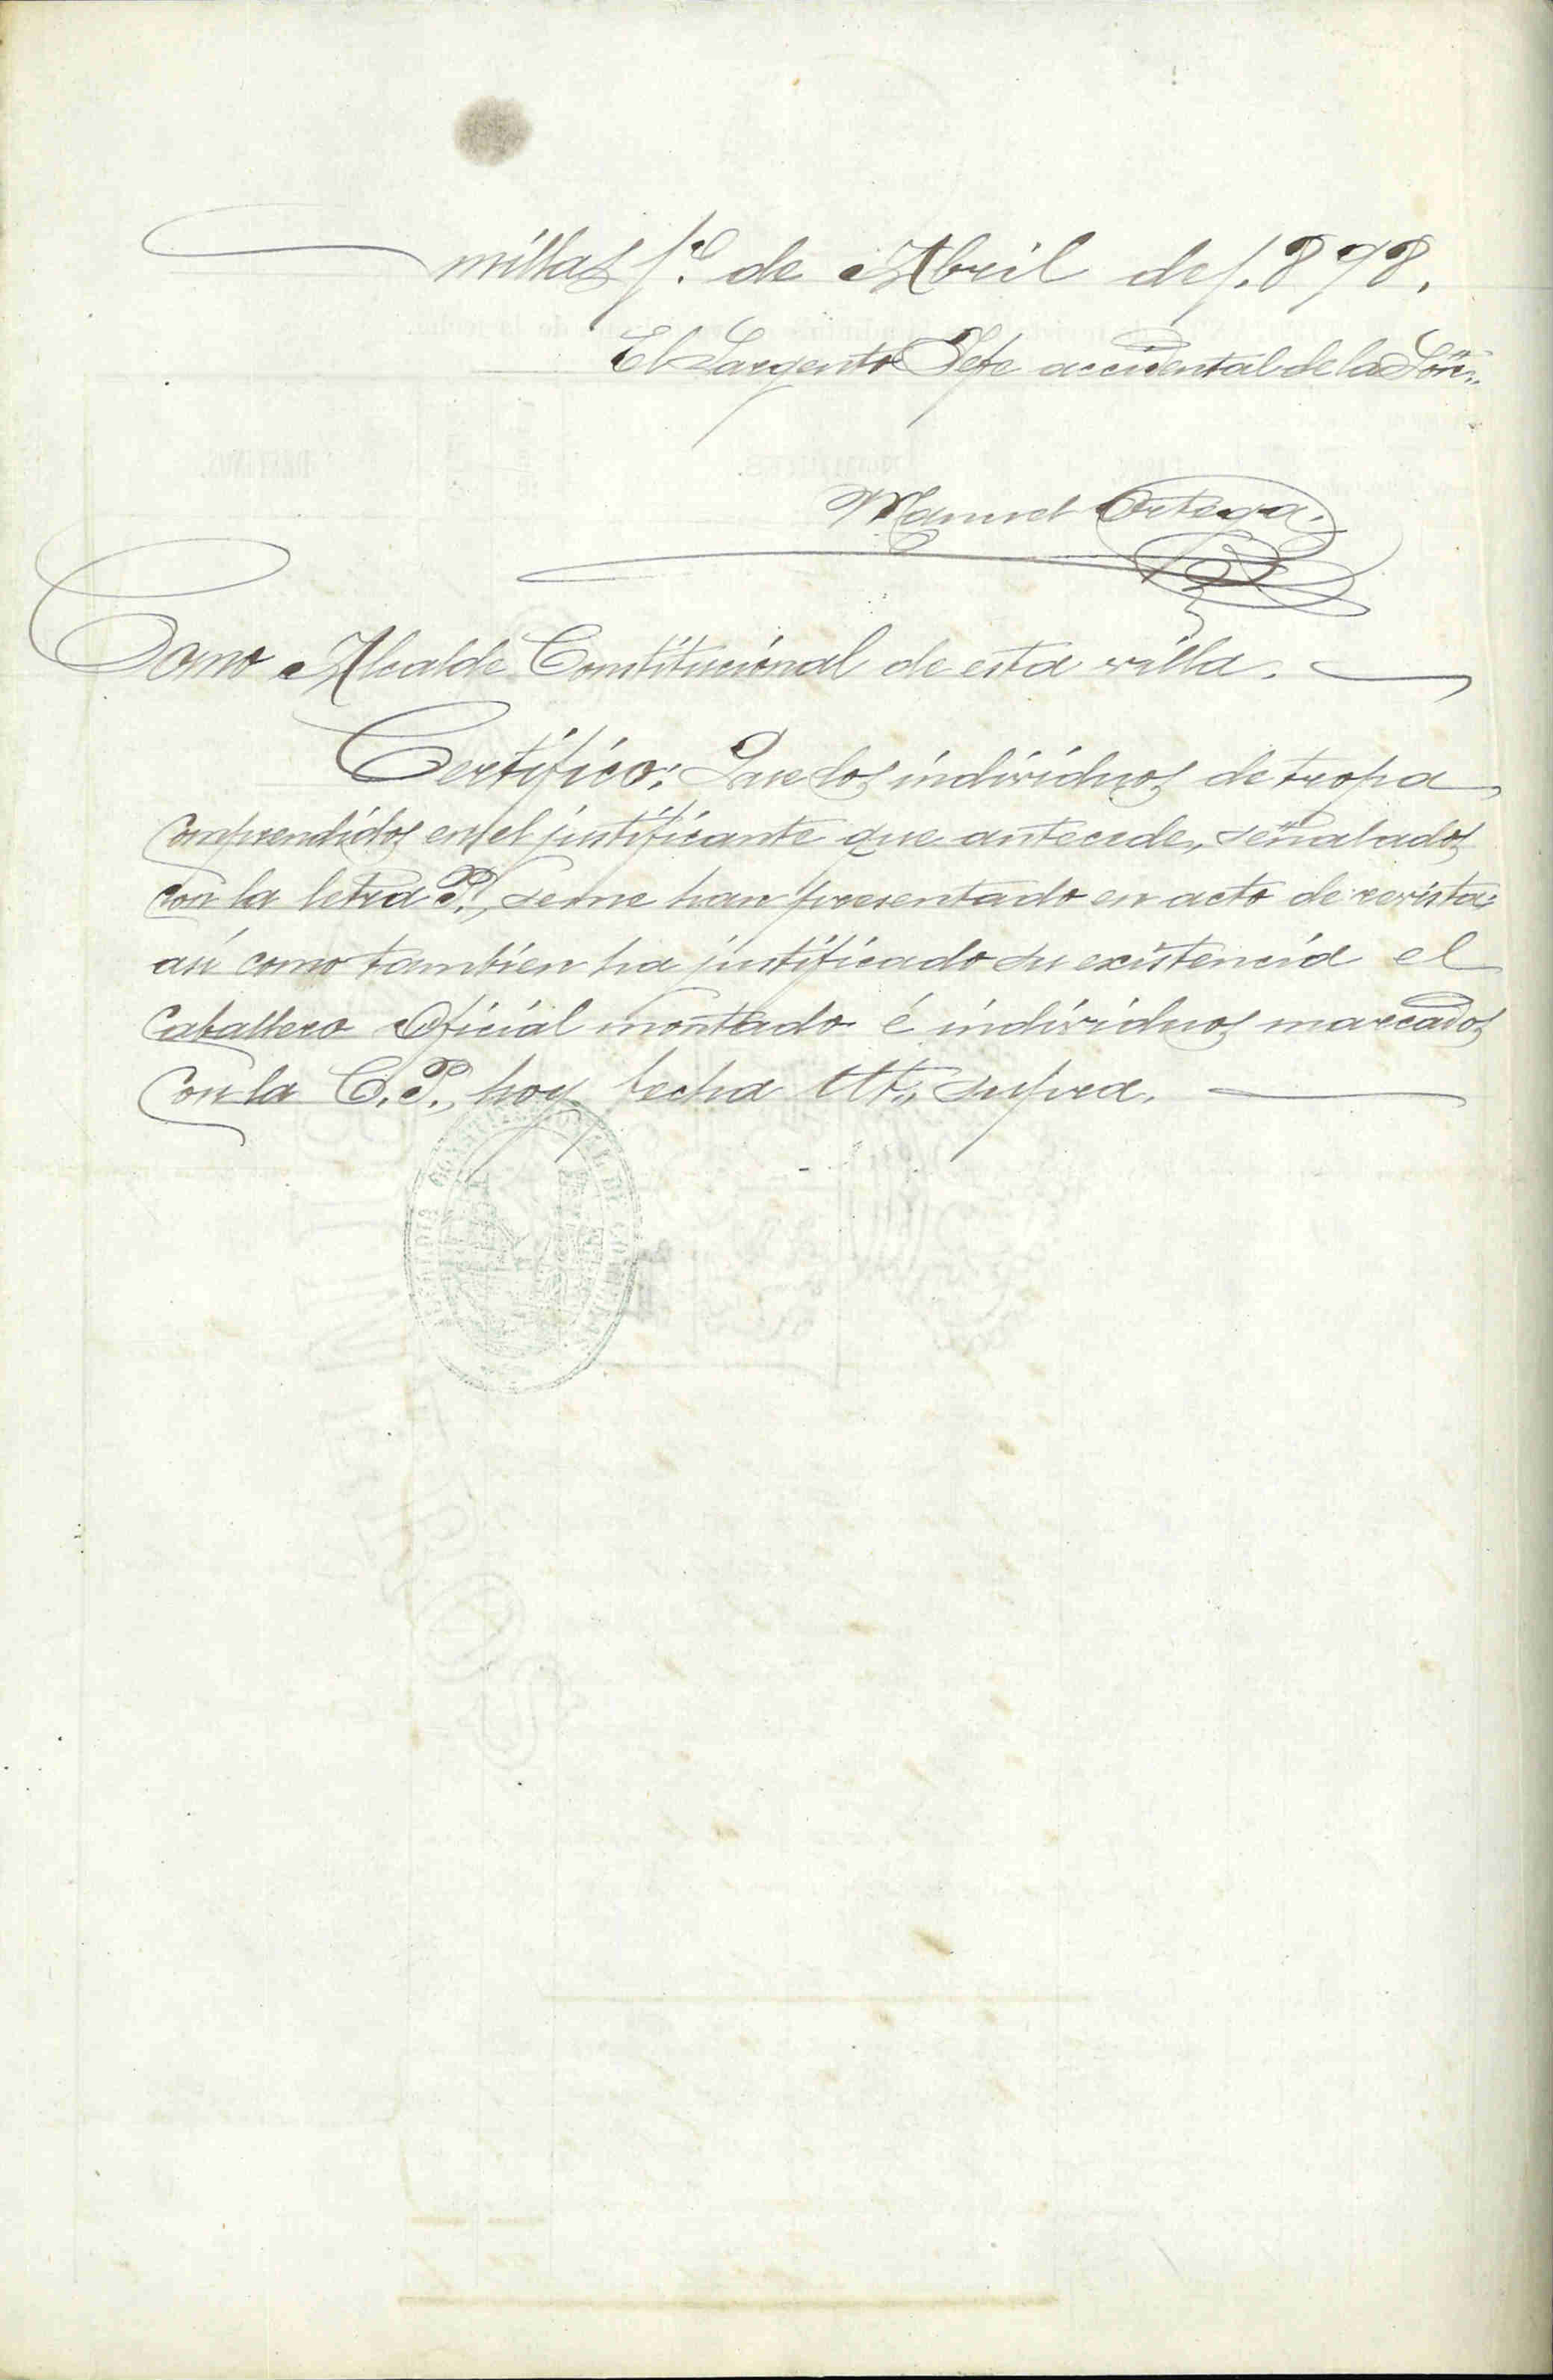 millas 1.º de Abril de 1.898.
El Sargento Jefe accidental de la Lón.,
Manuel Ortega.
Como Alcalde Constitucional de esta villa.
Certifico: Que los individuos de tropa
comprendidos en el justificante que antecede, señalados
con la letra P., se me han presentado en acto de revista;
así como tambien ha justificado su existencia el
Caballero Oficial montado é individuos marcados
con la C.P., hoy fecha Ut., supra.